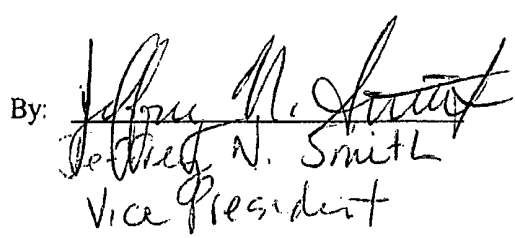 By: Jeffrey N. Smith
Jeffrey N. Smith
Vice President